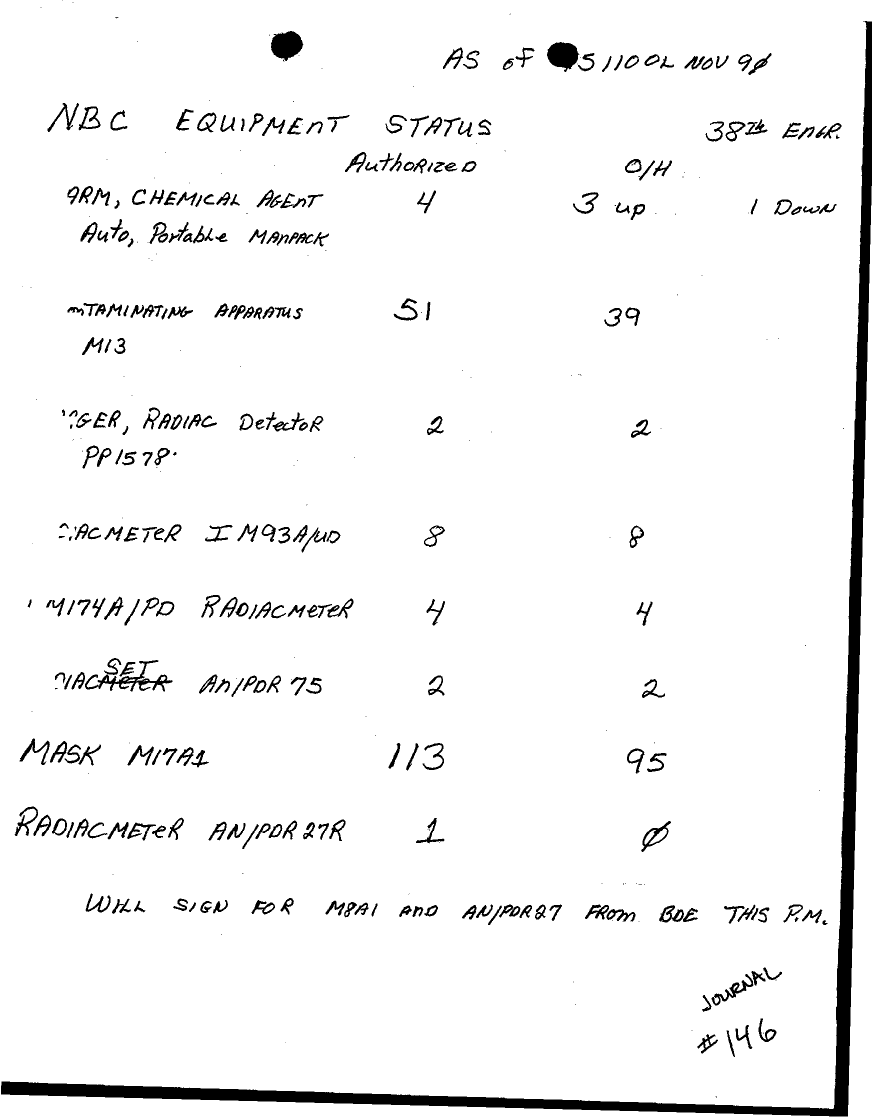 AS of 51100L NOV 9Ø
NBC EQUIPMENT STATUS 38th ENGR.
AuthoRized O/H
ARM, CHEMICAL AGEnT 4 3 up 1 Down
Auto, PortabLe MAnPACK
nTAMINATING APPARATUS 51 39
M13
GER, RADIAC DetectoR 2 2
PP1578
IACMETeR IM93A/UD 8 8
M174A/PD RADIACMeteR 4 4
IAC SET AN/PDR 75 2 2
MASK M17A1 113 95
RADIACMETeR AN/PDR 27R 1 Ø
WILL SIGN FOR M8A1 AnD AN/PDR27 FRom BDE THIS P.M.
JOURNAL
#146